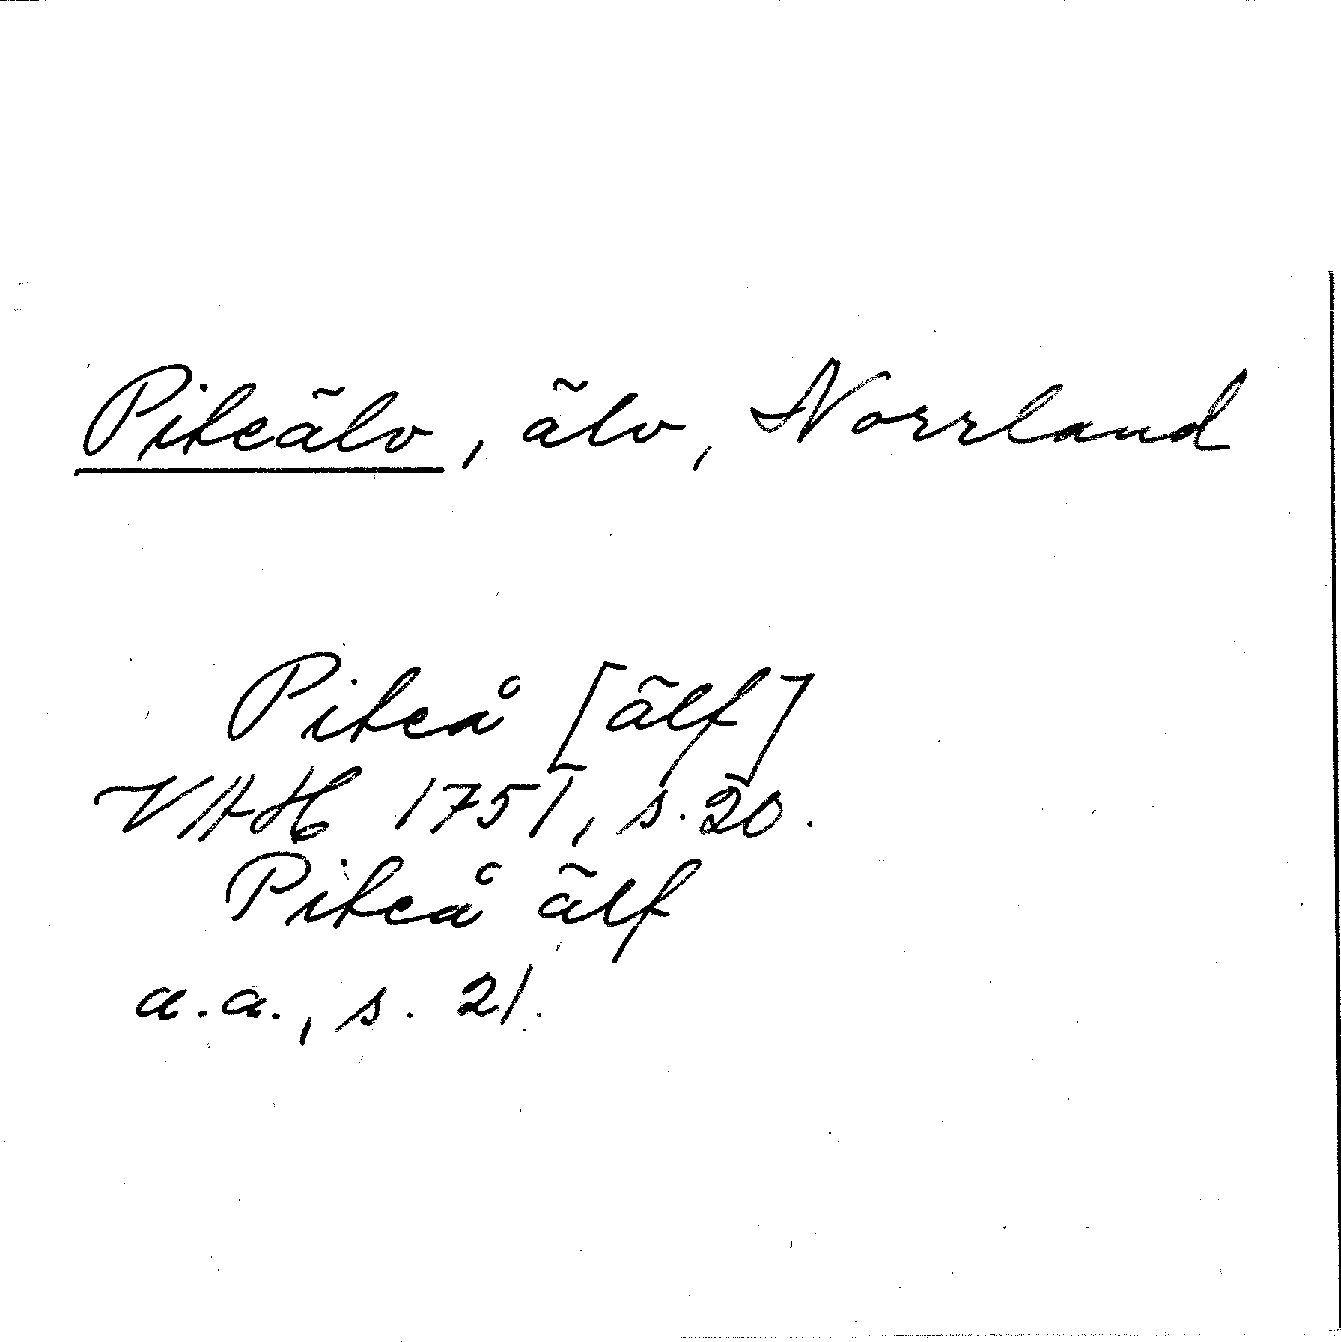 Piteälv, älv, Norrland
Piteå [älf]
VAH 1751, s. 20.
Piteå älf
a.a., s. 21.